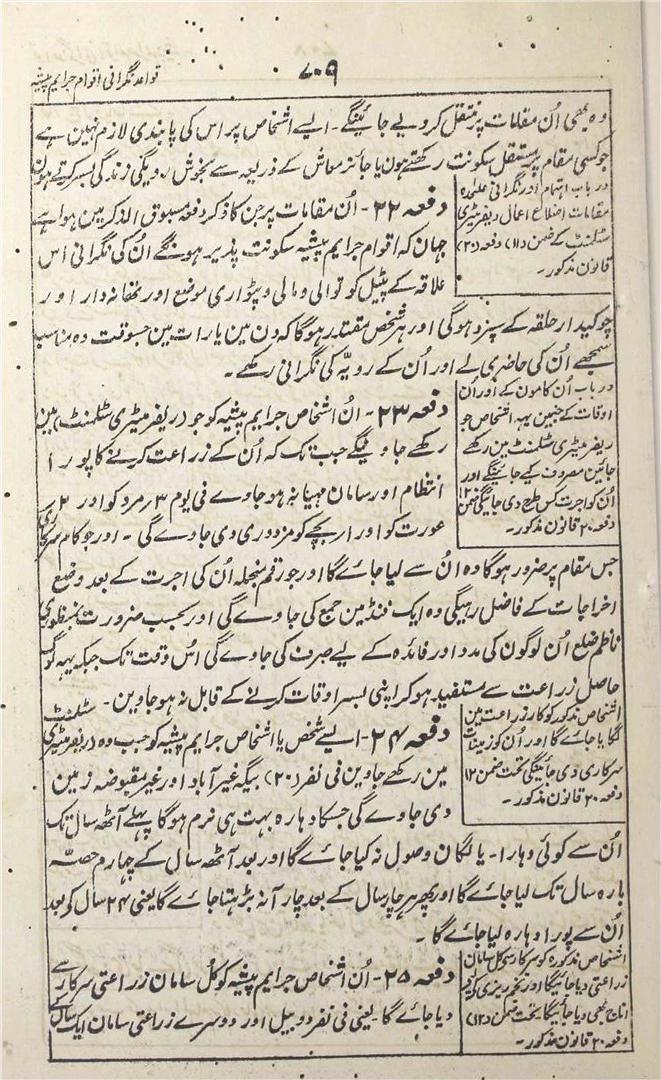 ۷۰۹
قواعد نگرانی اقوام جرایم پیشہ
وہ بھی اُن مقامات پر منتقل کر دیے جائینگے۔ ایسے اشخاص پر اس کی پابندی لازم نہین ہے
جو کسی مقام پر مستقل سکونت رکھتے ہون یا جائز معاش کے ذریعہ سے بخوش رویگی زندگی بسر کرتے ہون
در باب اہتمام اور نگرانی علیحدہ
مقامات اضلاع اعمال ریفرمیٹری
سٹلمنٹ کے ضمن (۱۱) دفعہ (۲۰)
قانون مذکور۔
دفعہ ۲۲۔ اُن مقامات پر جن کا ذکر دفعہ مسبوق الذکر مین ہوا ہے
جہان کہ اقوام جرایم پیشہ سکونت پذیر ہونگے اُن کی نگرانی اُس
علاقہ کے پٹیل کوتوالی و مالی و پٹواری موضع اور تھانہ دار اور
چوکیدار حلقہ کے سپرد ہوگی اور ہر شخص مقتدر ہوگا کہ دن مین یا رات مین جسوقت وہ مناسب
سمجھے اُن کی حاضری لے اور اُن کے رویّہ کی نگرانی رکھے۔
در باب اُن کامون کے اور اُن
اوقات کے جنمین یہہ اشخاص جو
ریفرمیٹری سٹلمنٹ مین رکھے
جائین مصروف کیے جائینگے اور
اُن کو اجرت کس طرح دی جائیگی ضمن ۱۲
دفعہ ۲۰ قانون مذکور۔
دفعہ ۲۳۔ اُن اشخاص جرایم پیشہ کو جو ریفرمیٹری سٹلمنٹ مین
رکھے جاوینگے جب تک کہ اُن کے زراعت کرنے کا پورا
انتظام اور سامان مہیا نہ ہو جاوے فی یوم ۳ر مرد کو اور ۲ر
عورت کو اور ار بچے کو مزدوری دی جاوے گی۔ اور جو کام سرکاری
جس مقام پر ضرور ہوگا وہ اُن سے لیا جائے گا اور جو رقم منجملہ اُن کی اجرت کے بعد وضع
اخراجات کے فاضل رہیگی وہ ایک فنڈ مین جمع کی جاوے گی اور بحسب ضرورت بمنظوری
ناظم ضلع اُن لوگون کی مدد اور فائدہ کے لیے صرف کی جاوے گی اُس وقت تک جبکہ یہہ لوگ
حاصل زراعت سے مستفید ہو کر اپنی بسر اوقات کرنے کے قابل نہ ہو جاوین۔
اشخاص مذکور کو کار زراعت مین
لگایا جائے گا اور اُن کو زمینات
سرکاری دی جائینگی تحت ضمن ۱۲
دفعہ ۲۰ قانون مذکور۔
دفعہ ۲۴۔ ایسے شخص یا اشخاص جرایم پیشہ کو جب وہ ریفرمیٹری سٹلمنٹ
مین رکھے جاوین فی نفر (۲۰) بیگہ غیر آباد اور غیر مقبوضہ زمین
دی جاوے گی جسکا دہارہ بہت ہی نرم ہوگا پہلے آٹھ سال تک
اُن سے کوئی دہارا۔ یا لگان وصول نہ کیا جائے گا اور بعد آٹھ سال کے چہارم حصّہ
بارہ سال تک لیا جائے گا اور پھر ہر چار سال کے بعد چار آنہ بڑہتا جائے گا یعنی ۲۴ سال کے بعد
اُن سے پورا دہارہ لیا جائے گا۔
اشخاص مذکورہ کو سرکار سے کل سامان
زراعتی دیا جائیگا اور تخم ریزی کو
اناج بھی دیا جائیگا تحت ضمن (۱۲)
دفعہ ۲۰ قانون مذکور۔
دفعہ ۲۵۔ اُن اشخاص جرایم پیشہ کو کُل سامان زراعتی سرکار سے
دیا جائے گا۔ یعنی فی نفر دو بیل اور دوسرے زراعتی سامان ایک سال کے